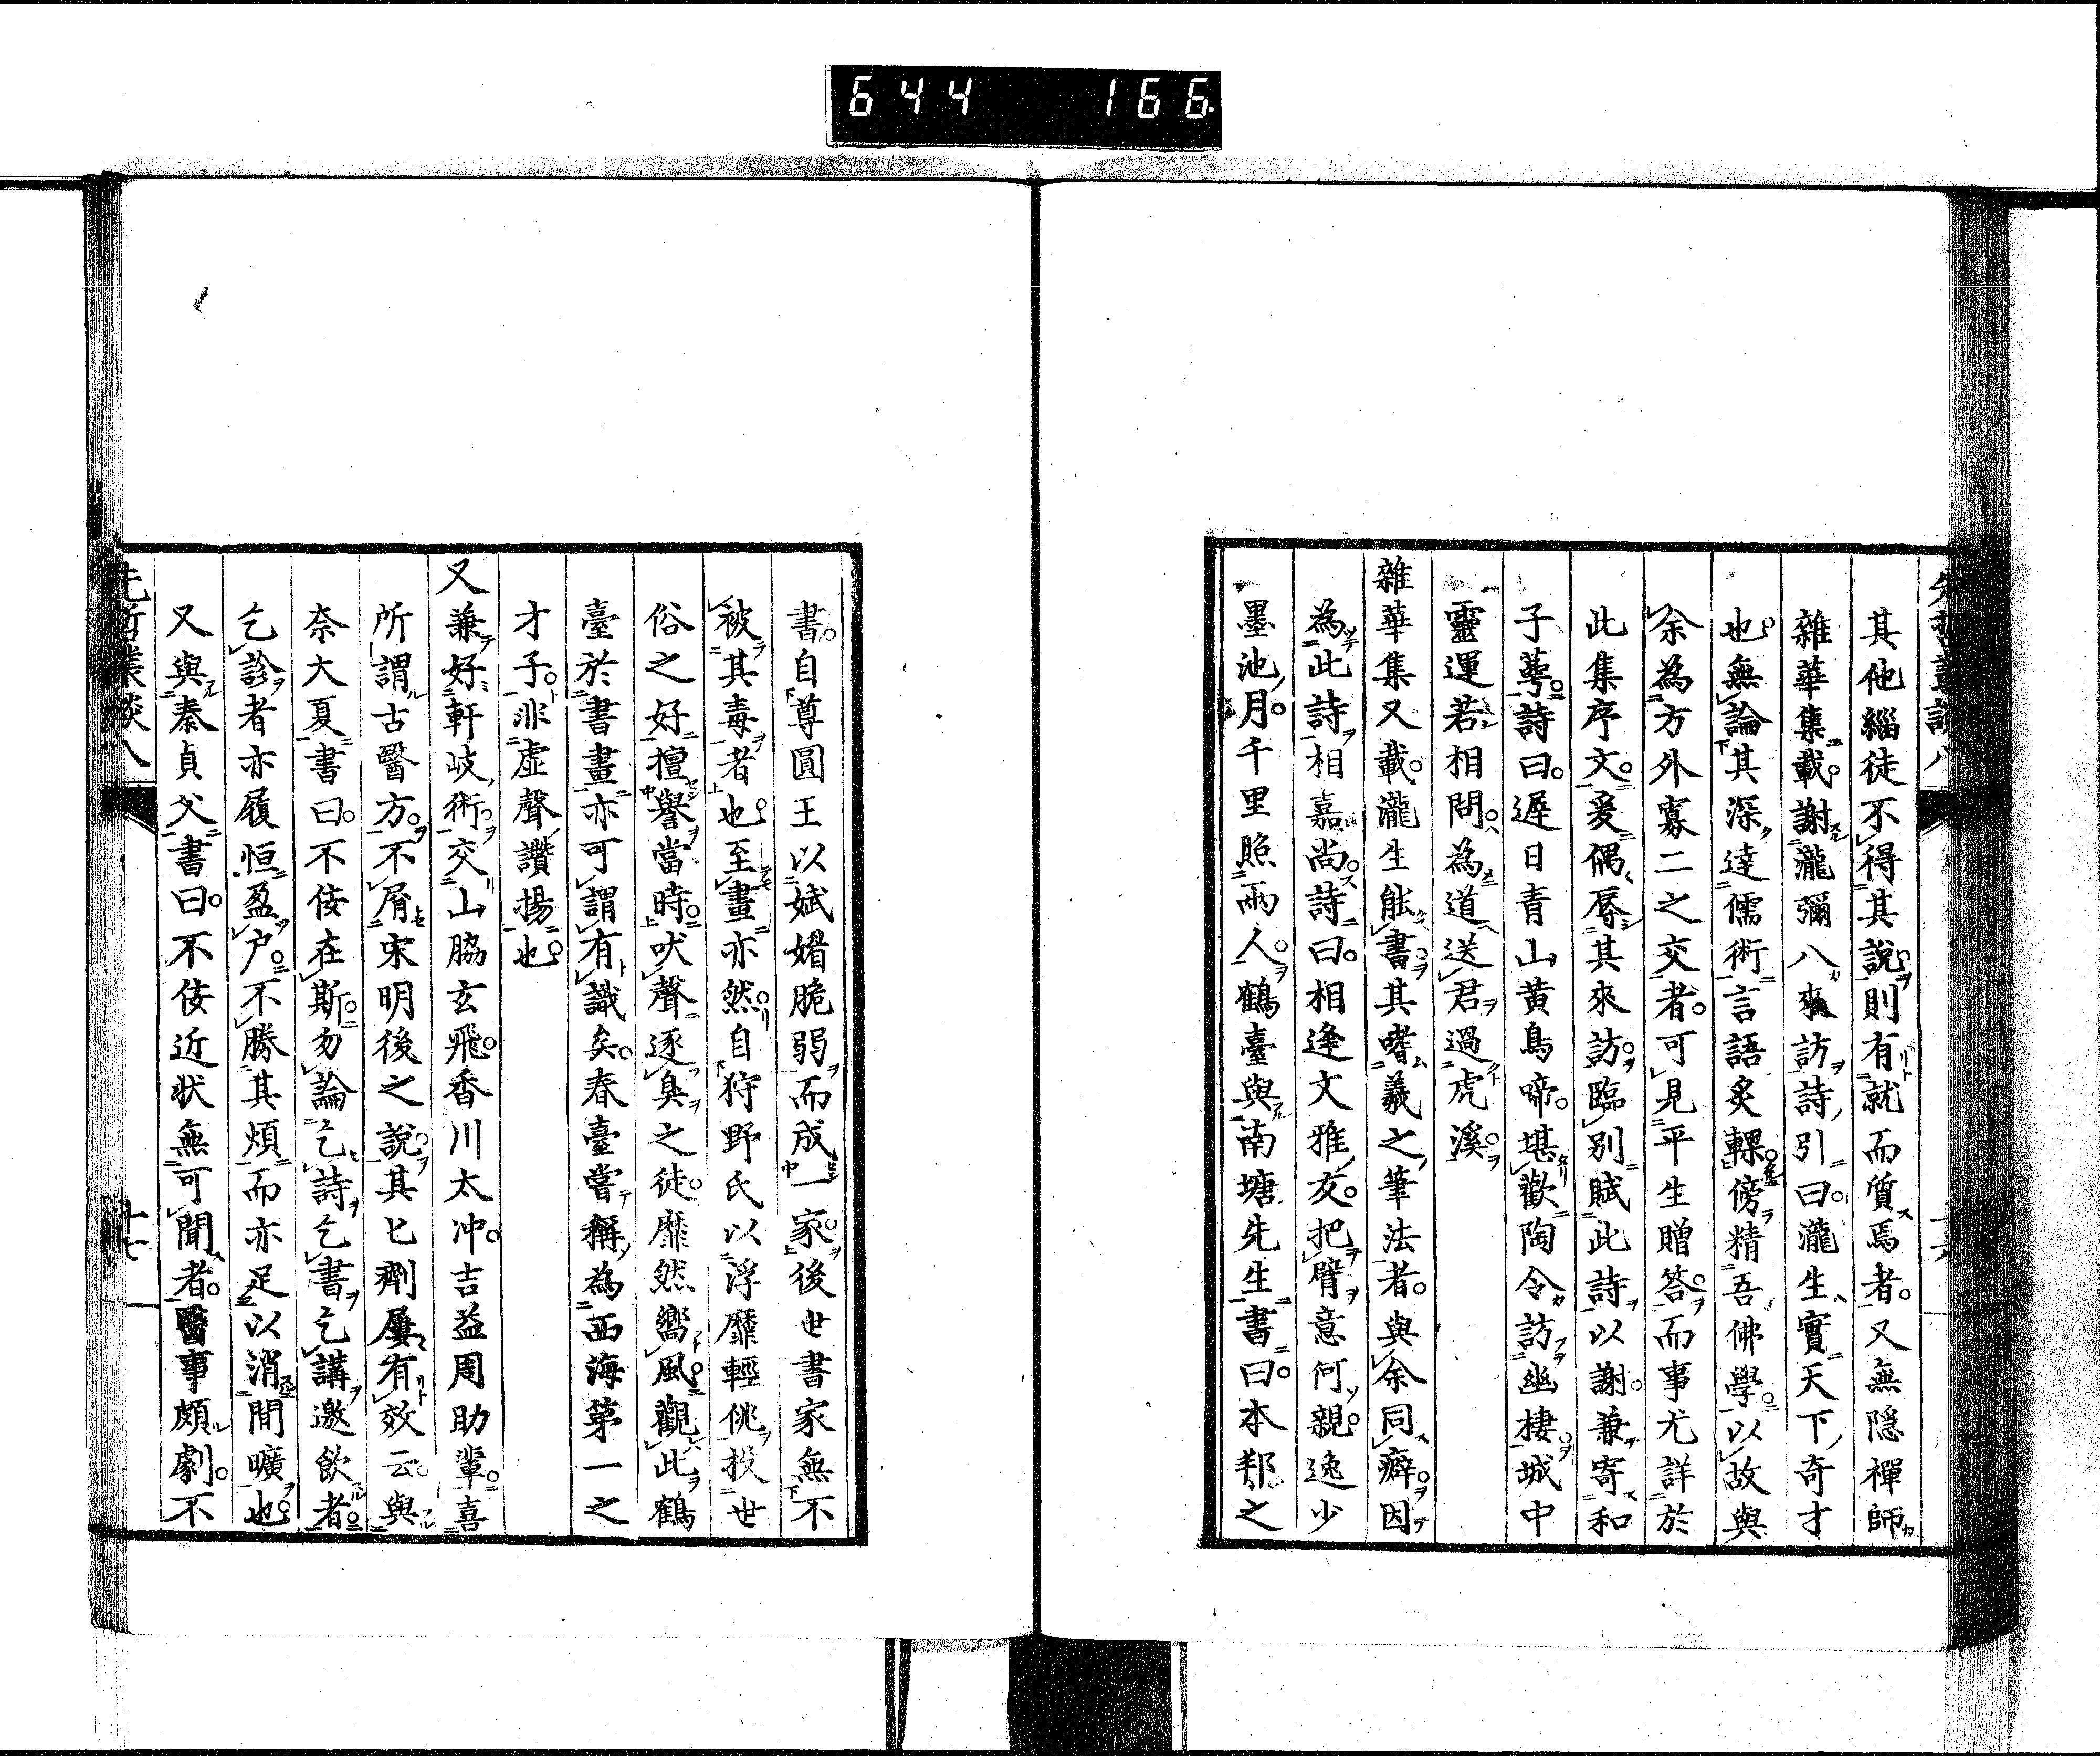 644 166
先哲叢談八
十六
其他緇徒不得其說則有就而質焉者。又無隱禪師
雜華集載。謝瀧彌八來訪詩引曰。瀧生實天下奇才
也。無論其深達儒術言語炙輠。傍精吾佛學。以故與
余為方外寡二之交者。可見平生贈答。而事尤詳於
此集序文。爰偶辱其來訪。臨別賦此詩以謝。兼寄和
子蕚。詩曰。遲日青山黃鳥啼。堪歡陶令訪幽棲。城中
靈運若相問。為道送君過虎溪。
雜華集又載。瀧生能書。其嗜羲之筆法者。與余同癖。因
為此詩相嘉尚。詩曰。相逢文雅友。把臂意何親。逸少
墨池月。千里照兩人。鶴臺與南塘先生書曰。本邦之
書。自尊圓王以娬媚脆弱而成一家。後世書家無不
被其毒者也。至畫亦然。自狩野氏以浮靡輕佻投世
俗之好擅譽當時。吠聲逐臭之徒。靡然嚮風。觀此鶴
臺於書畫亦可謂有識矣。春臺嘗稱為西海第一之
才子。非虛聲讚揚也。
又兼好軒岐術。交山脇玄飛。香川太冲。吉益周助輩。喜
所謂古醫方。不屑宋明後之說。其匕劑屢有效云。與
奈大夏書曰。不佞在斯。勿論乞詩乞書乞講邀飲者。
乞診者亦履恒盈户。不勝其煩而亦足以消閒曠也。
又與秦貞父書曰。不佞近状無可聞者。醫事頗劇。不
先哲叢談八
十七